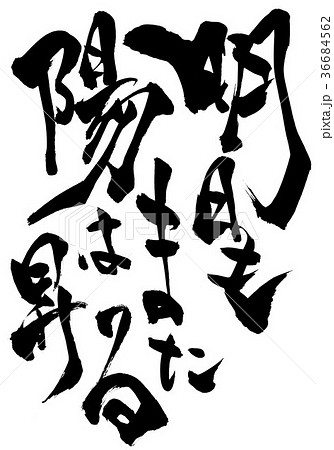 明日も
また
陽は
昇る
PIXTA
pixta.jp - 36684562